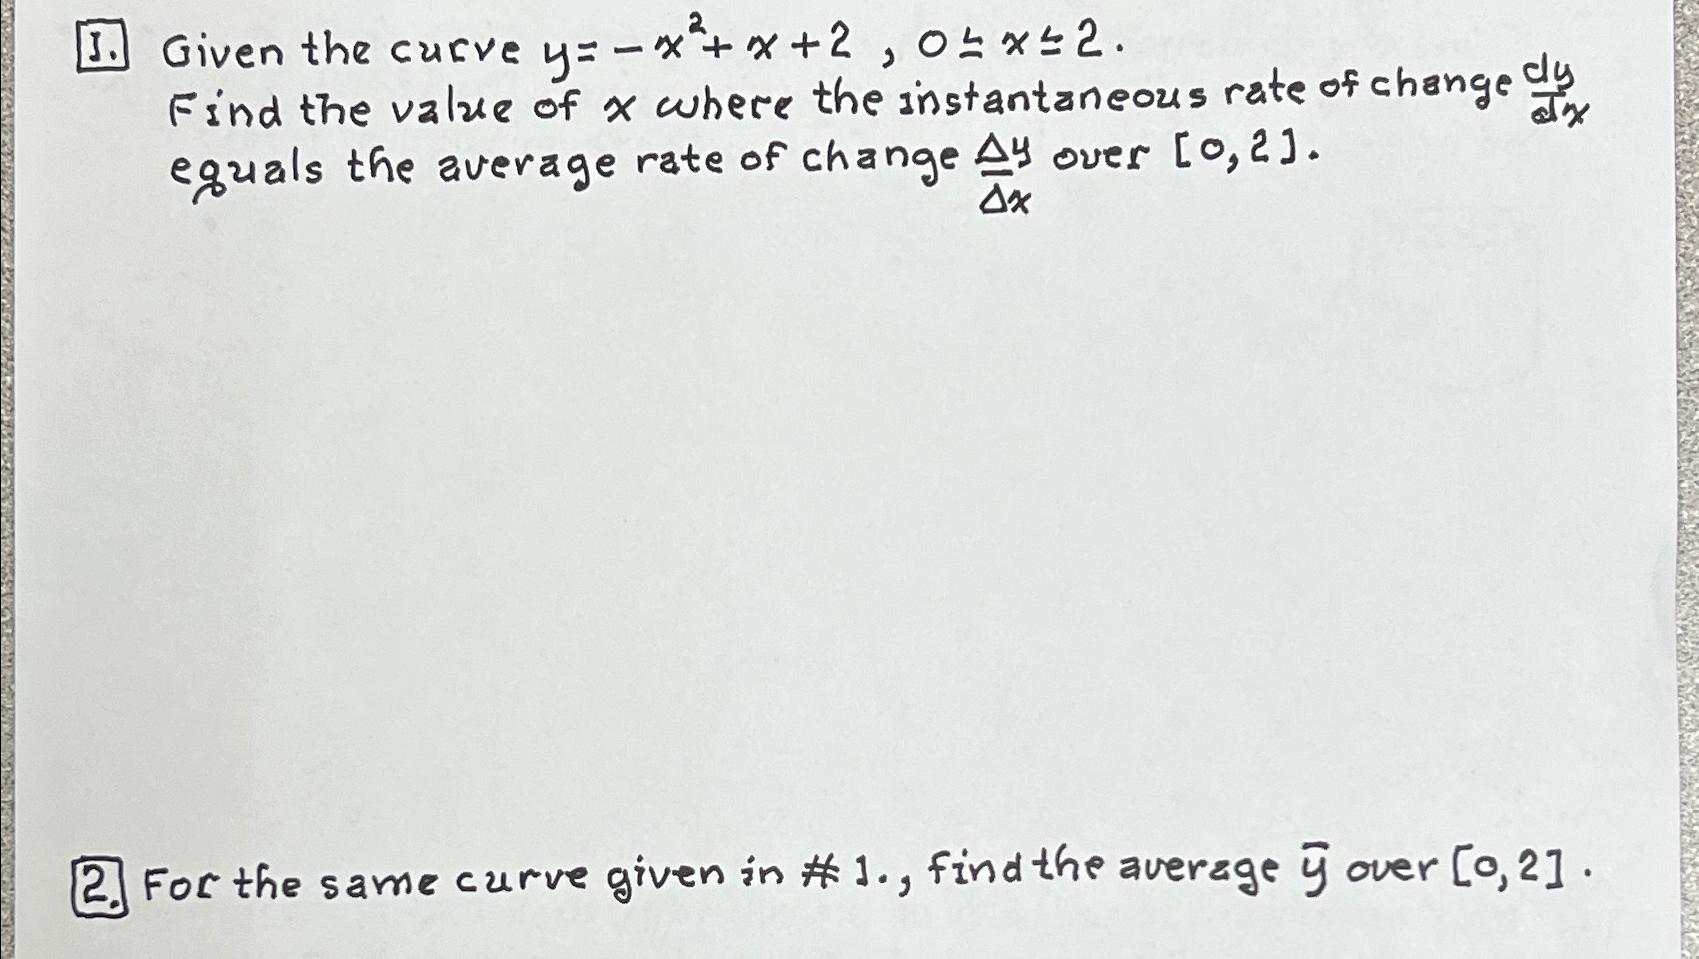 1. Given the curve y = -x² + x + 2 , 0 ≤ x ≤ 2.
Find the value of x where the instantaneous rate of change dy/dx
equals the average rate of change Δy/Δx over [0,2].
2. For the same curve given in #1., find the average ȳ over [0,2].